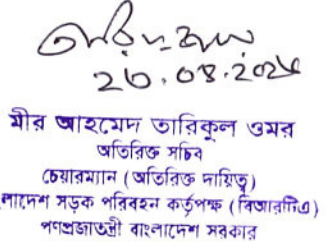 ২৩.০৪.২০২৫
মীর আহমেদ তারিকুল ওমর
অতিরিক্ত সচিব
চেয়ারম্যান (অতিরিক্ত দায়িত্ব)
লাদেশ সড়ক পরিবহন কর্তৃপক্ষ (বিআরটিএ)
গণপ্রজাতন্ত্রী বাংলাদেশ সরকার